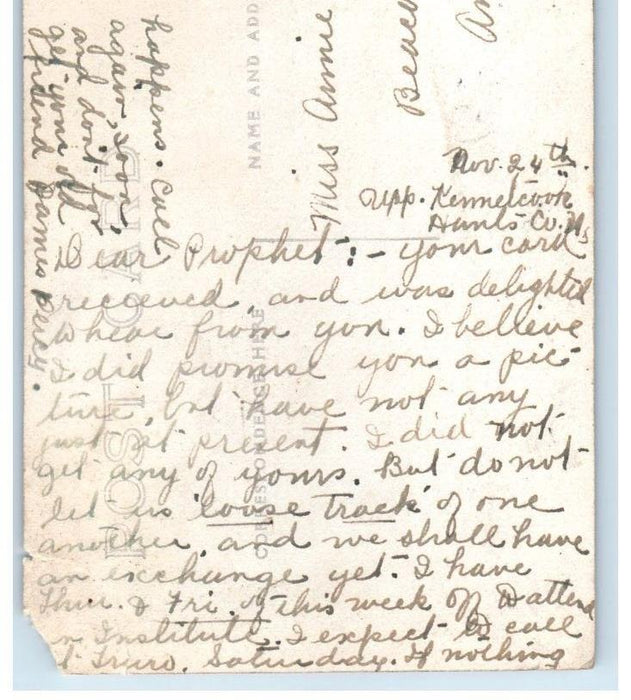 Nov. 24th.
Upp. Kennetcook
Hants Co. N.S
Dear Prophet:- your card
receeved, and was delighted
to hear from you. I believe
I did promise you a pic-
ture, but have not any
just at present. I did not
get any of yours. But do not
let us 'loose track' of one
another, and we shall have
an exchange yet. I have
Thur. & Fri. of this week off to attend
an Institute. I expect to call
at Truro. Saturday. If nothing
happens. Call
again soon,
and don't for
get your old
friend James
NAME AND ADD
Miss Annie
Beac
An
POST CARD
CORRESPONDENCE HERE